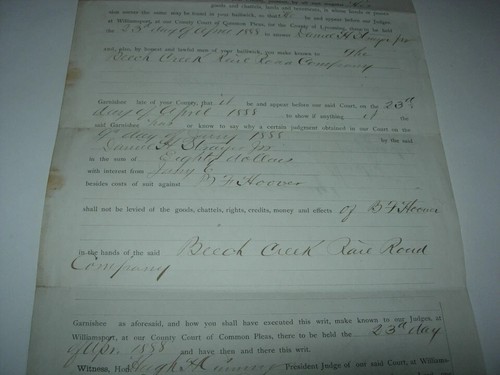 goods and chattels, lands and tenements, in whose hands or power
that the same may be found in your bailiwick, so that he be and appear before our Judges
at Williamsport, at our County Court of Common Pleas, for the County of Lycoming, there to be held
the 23d day of April 1888 to answer Daniel H
and, also, by honest and lawful men of your bailiwick, you make known to The
Beech Creek Rail Road Company
Garnishee late of your County, that it be and appear before our said Court, on the 23d
day of April 1888 to show if anything it the
said Garnishee has or know to say why a certain judgment obtained in our Court on the
day of 1888 by the said
Daniel H
in the sum of Eighty dollars
with interest from
besides costs of suit against B F Hoover
shall not be levied of the goods, chattels, rights, credits, money and effects of B F Hoover
in the hands of the said Beech Creek Rail Road
Company
Garnishee as aforesaid, and how you shall have executed this writ, make known to our Judges, at
Williamsport, at our County Court of Common Pleas, there to be held the 23d day
of Apr. 1888 and have then and there this writ.
Witness, Hon. President Judge of our said Court, at Williams-